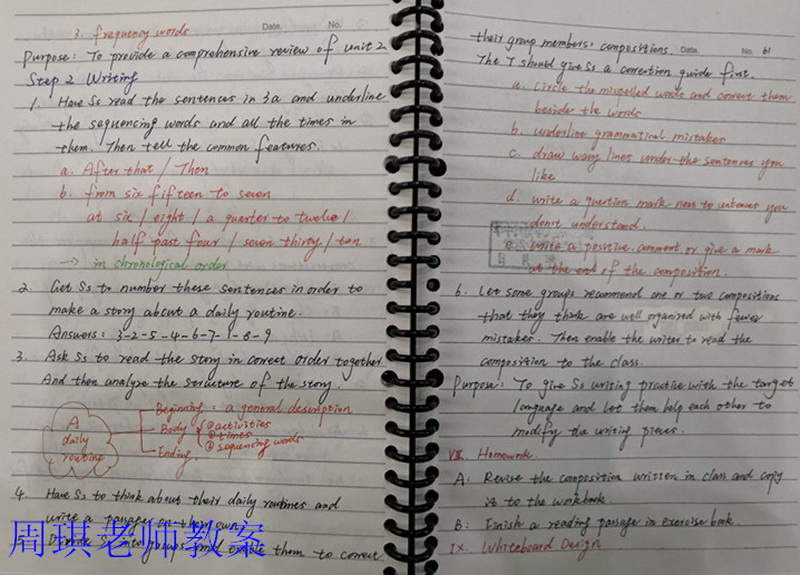 3. frequency words
Date. No.
Purpose: To provide a comprehensive review of unit 2
Step 2 Writing
1. Have Ss read the sentences in 3a and underline
the sequencing words and all the times in
them. Then tell the common features.
a. After that / Then
b. from six fifteen to seven
at six / eight / a quarter to twelve /
half past four / seven thirty / ten
→ in chronological order
2. Get Ss to number these sentences in order to
make a story about a daily routine.
Answers: 3-2-5-4-6-7-1-8-9
3. Ask Ss to read the story in correct order together.
And then analyze the structure of the story.
A daily routine
Beginning: a general description
Body ① activities
② times
③ sequencing words
Ending
4. Have Ss to think about their daily routines and
write a passage on their own.
5. Divide Ss into groups and enable them to correct
周琪老师教案
their group members' compositions. Date. No. 61
The T should give Ss a correction guide first.
a. circle the mispelled words and correct them
beside the words
b. underline grammatical mistakes
c. draw wavy lines under the sentences you
like
d. write a question mark next to sentences you
don't understand.
e. write a positive comment or give a mark
at the end of the composition.
6. Let some groups recommend one or two compositions
that they think are well organized with fewer
mistakes. Then enable the writer to read the
composition to the class.
Purpose: To give Ss writing practice with the target
language and let them help each other to
modify the writing pieces.
VIII. Homework.
A: Revise the composition written in class and copy
it to the workbook.
B: Finish a reading passage in exercise book.
IX. Whiteboard Design